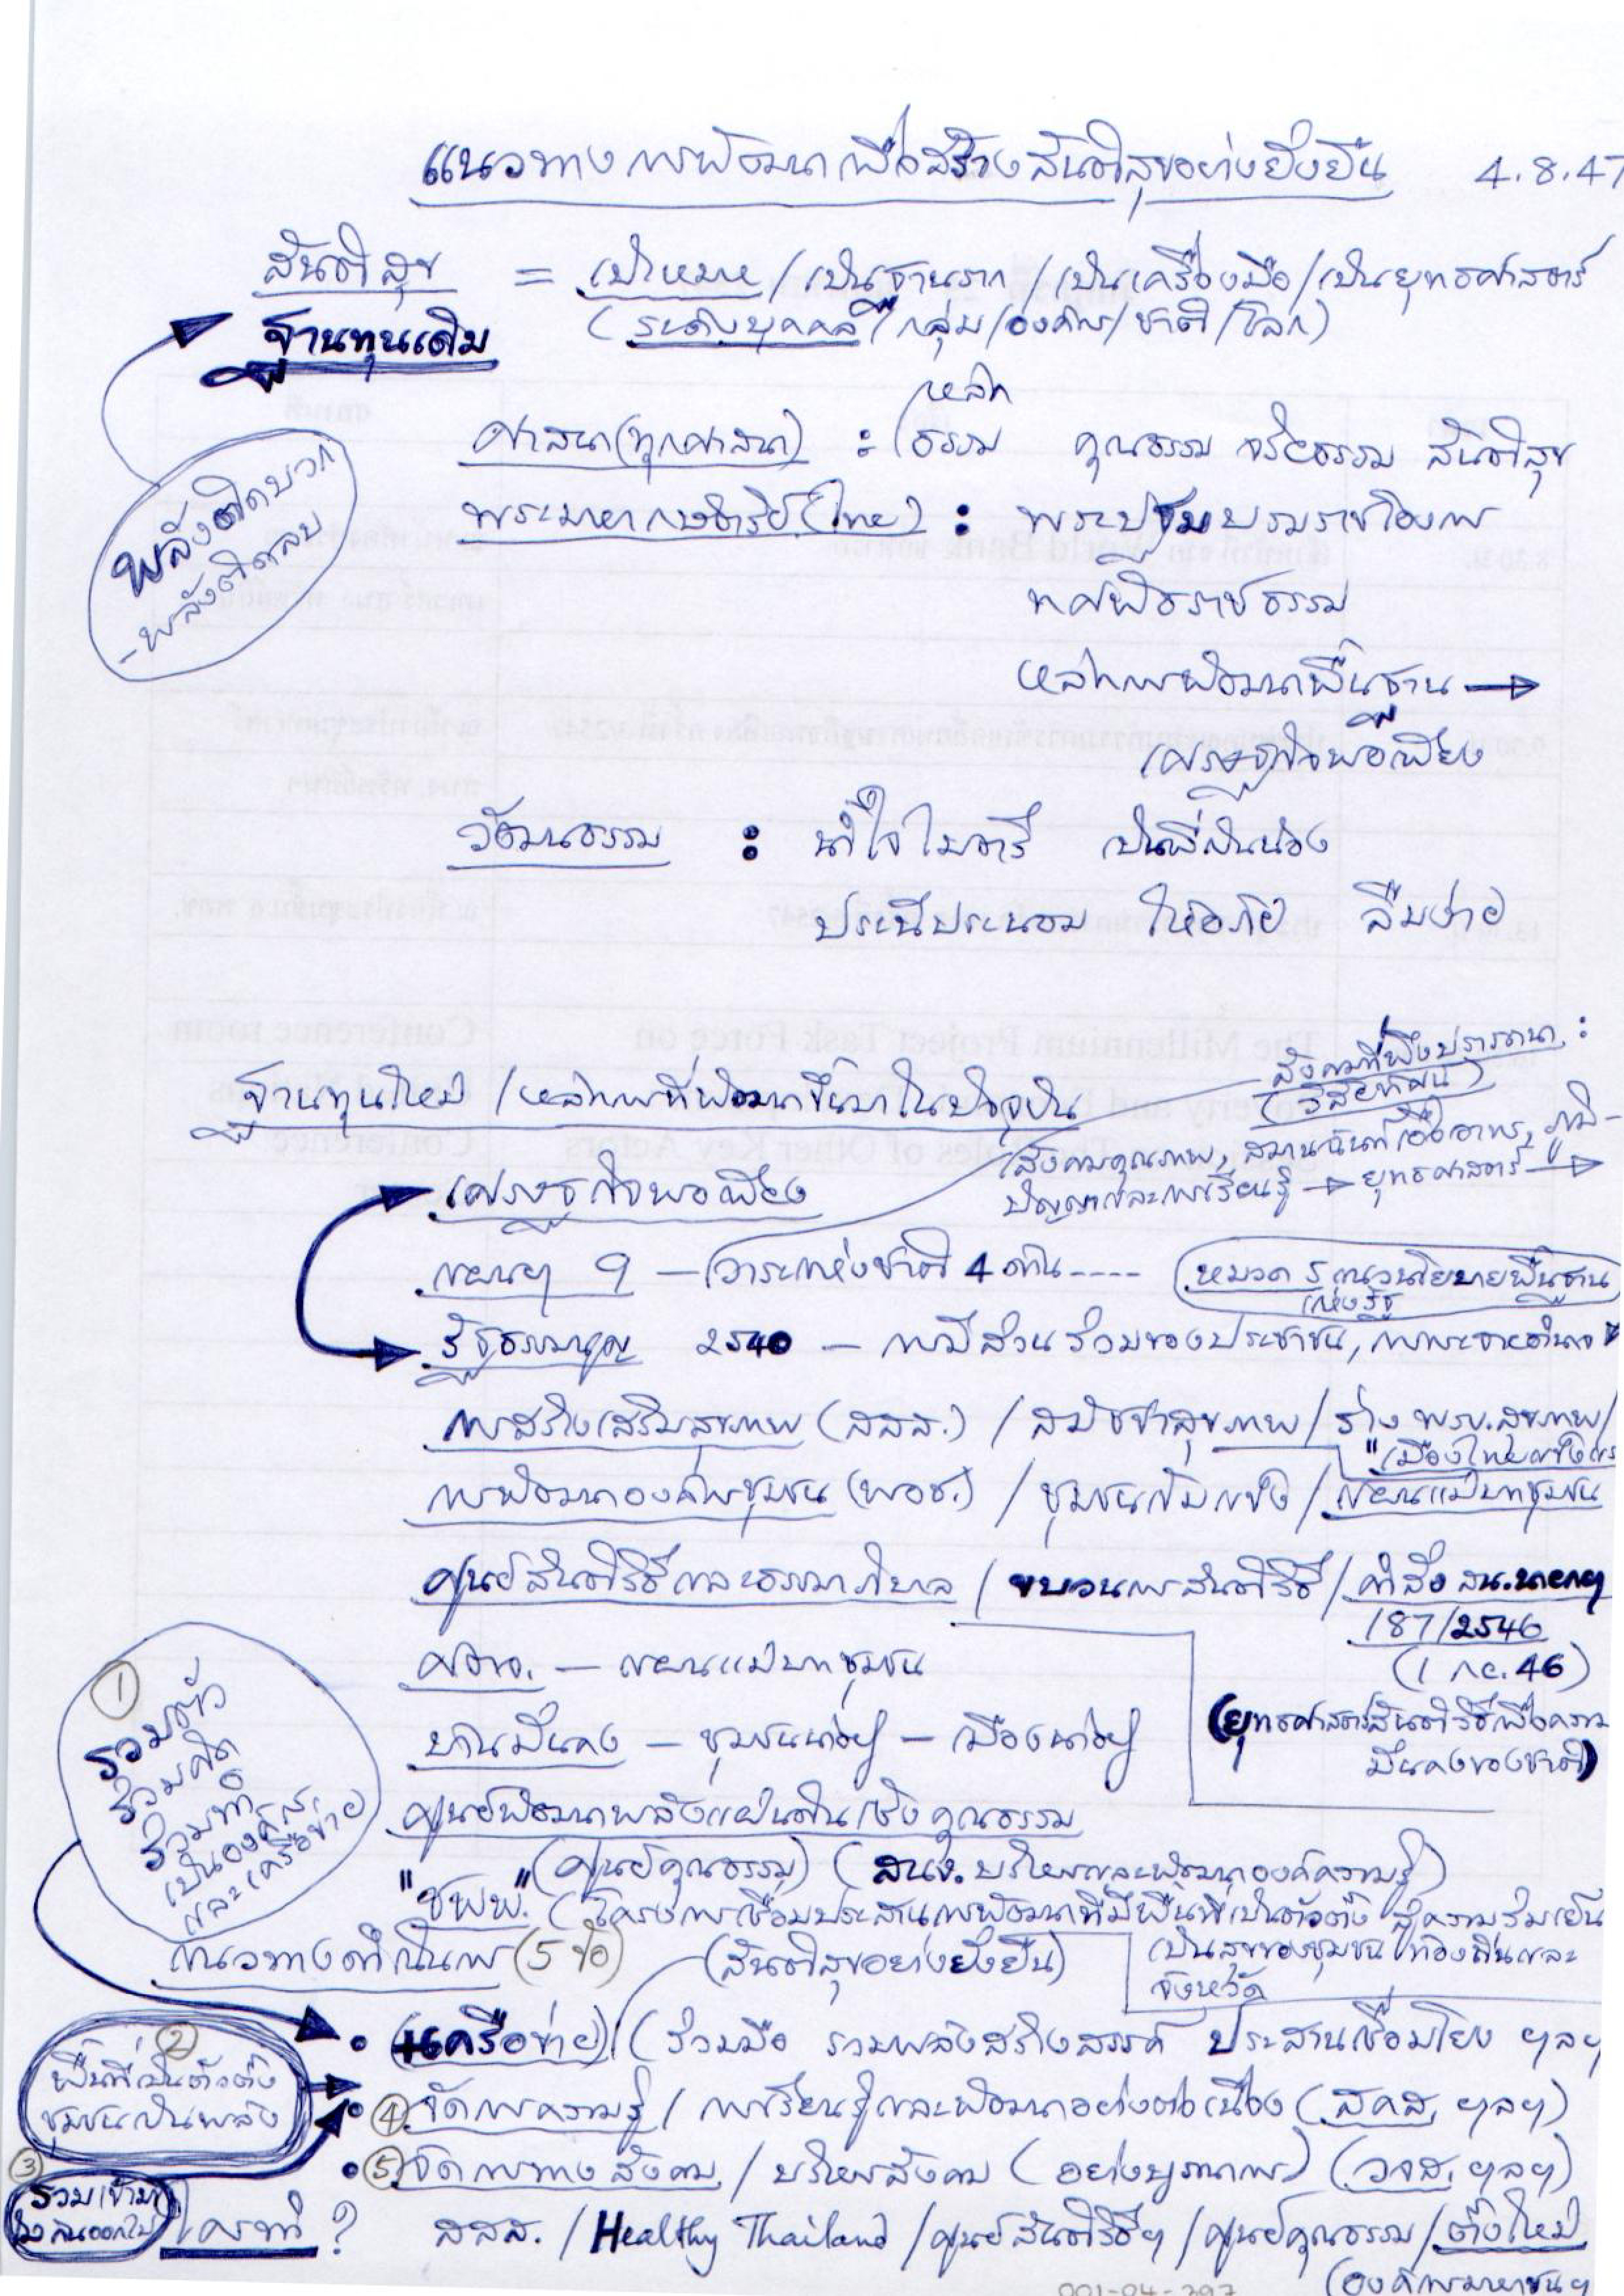 แนวทางการพัฒนาเพื่อสร้างสันติสุขอย่างยั่งยืน 4.8.47
สันติสุข = เป้าหมาย / เป็นฐานราก / เป็นเครื่องมือ / เป็นยุทธศาสตร์
(ระดับบุคคล / กลุ่ม / องค์กร / ชาติ / โลก)
ฐานทุนเดิม
พลังติดบวก
- พลังติดลบ
หลัก
ศาสนา (ทุกศาสนา) : ธรรม คุณธรรม จริยธรรม สันติสุข
พระมหากษัตริย์ (ไทย) : พระปฐมบรมราชโองการ
ทศพิธราชธรรม
หลักการพัฒนาพื้นฐาน →
เศรษฐกิจพอเพียง
วัฒนธรรม : น้ำใจไมตรี เป็นพี่เป็นน้อง
ประนีประนอม ให้อภัย ลืมง่าย
สังคมที่พึงปรารถนา :
(วิสัยทัศน์)
ฐานทุนใหม่ / หลักการที่พัฒนาขึ้นมาในปัจจุบัน
สังคมคุณภาพ, สมานฉันท์เอื้ออาทร, ภูมิ-
ปัญญาและการเรียนรู้ → ยุทธศาสตร์ →
เศรษฐกิจพอเพียง
แผนฯ 9 - วาระแห่งชาติ 4 ด้าน ---- หมวด 5 แนวนโยบายพื้นฐาน
แห่งรัฐ
รัฐธรรมนูญ 2540 - การมีส่วนร่วมของประชาชน, การกระจายอำนาจ
การสร้างเสริมสุขภาพ (สสส.) / สมัชชาสุขภาพ / ร่าง พรบ.สุขภาพ /
"เมืองไทยแข็งแรง
การพัฒนาองค์กรชุมชน (พอช.) / ชุมชนเข้มแข็ง / แผนแม่บทชุมชน
ศูนย์สันติวิธีและธรรมาภิบาล / ขบวนการสันติวิธี / คำสั่ง สน.นายกฯ
187/2546
(1 กย. 46)
ศตจ. - แผนแม่บทชุมชน
(ยุทธศาสตร์สันติวิธีเพื่อความ
มั่นคงของชาติ)
บ้านมั่นคง - ชุมชนน่าอยู่ - เมืองน่าอยู่
ศูนย์พัฒนาพลังแผ่นดินเชิงคุณธรรม
(ศูนย์คุณธรรม) (สนง. บริหารและพัฒนาองค์ความรู้)
①
รวมตัว
ร่วมคิด
ร่วมทำ
เป็นองค์กร
และเครือข่าย
"ชพพ." (โครงการเชื่อมประสานการพัฒนาที่มีพื้นที่เป็นตัวตั้ง สู่ความร่มเย็น
เป็นสุขของชุมชน ท้องถิ่นและ
จังหวัด
แนวทางดำเนินการ (5 ข้อ) (สันติสุขอย่างยั่งยืน)
• (เครือข่าย) (ร่วมมือ รวมพลังสร้างสรรค์ ประสานเชื่อมโยง ฯลฯ
②
พื้นที่เป็นตัวตั้ง
ชุมชนเป็นพลัง
• ④ จัดการความรู้ / การเรียนรู้และพัฒนาอย่างต่อเนื่อง (สคส, ฯลฯ)
• ⑤ จัดการทางสังคม / บริหารสังคม (อย่างบูรณาการ) (วจส, ฯลฯ)
③
ใครทำ ? สสส. / Healthy Thailand / ศูนย์สันติวิธีฯ / ศูนย์คุณธรรม / ตั้งใหม่
(องค์การมหาชนฯ
001-04-297